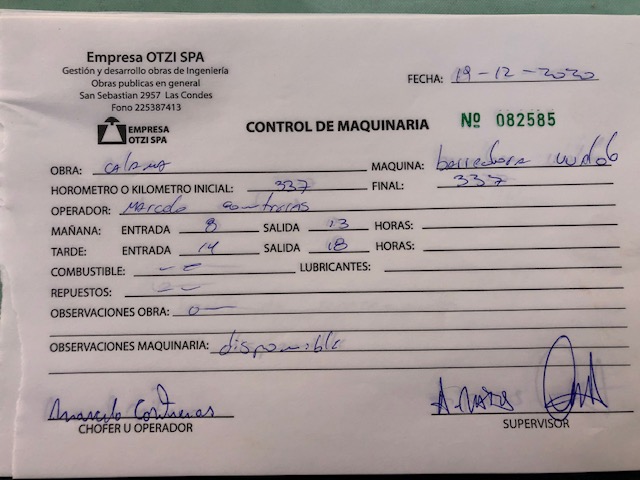 Empresa OTZI SPA
Gestión y desarrollo obras de Ingeniería
Obras publicas en general
San Sebastian 2957 Las Condes
Fono 225387413
FECHA: 19-12-2020
EMPRESA
OTZI SPA
CONTROL DE MAQUINARIA Nº 082585
OBRA: calama MAQUINA: barredora
HOROMETRO O KILOMETRO INICIAL: 337 FINAL: 337
OPERADOR: Marcelo contreras
MAÑANA: ENTRADA 8 SALIDA 13 HORAS:
TARDE: ENTRADA 14 SALIDA 18 HORAS:
COMBUSTIBLE: LUBRICANTES:
REPUESTOS:
OBSERVACIONES OBRA:
OBSERVACIONES MAQUINARIA: disponible
Contreras
CHOFER U OPERADOR
SUPERVISOR